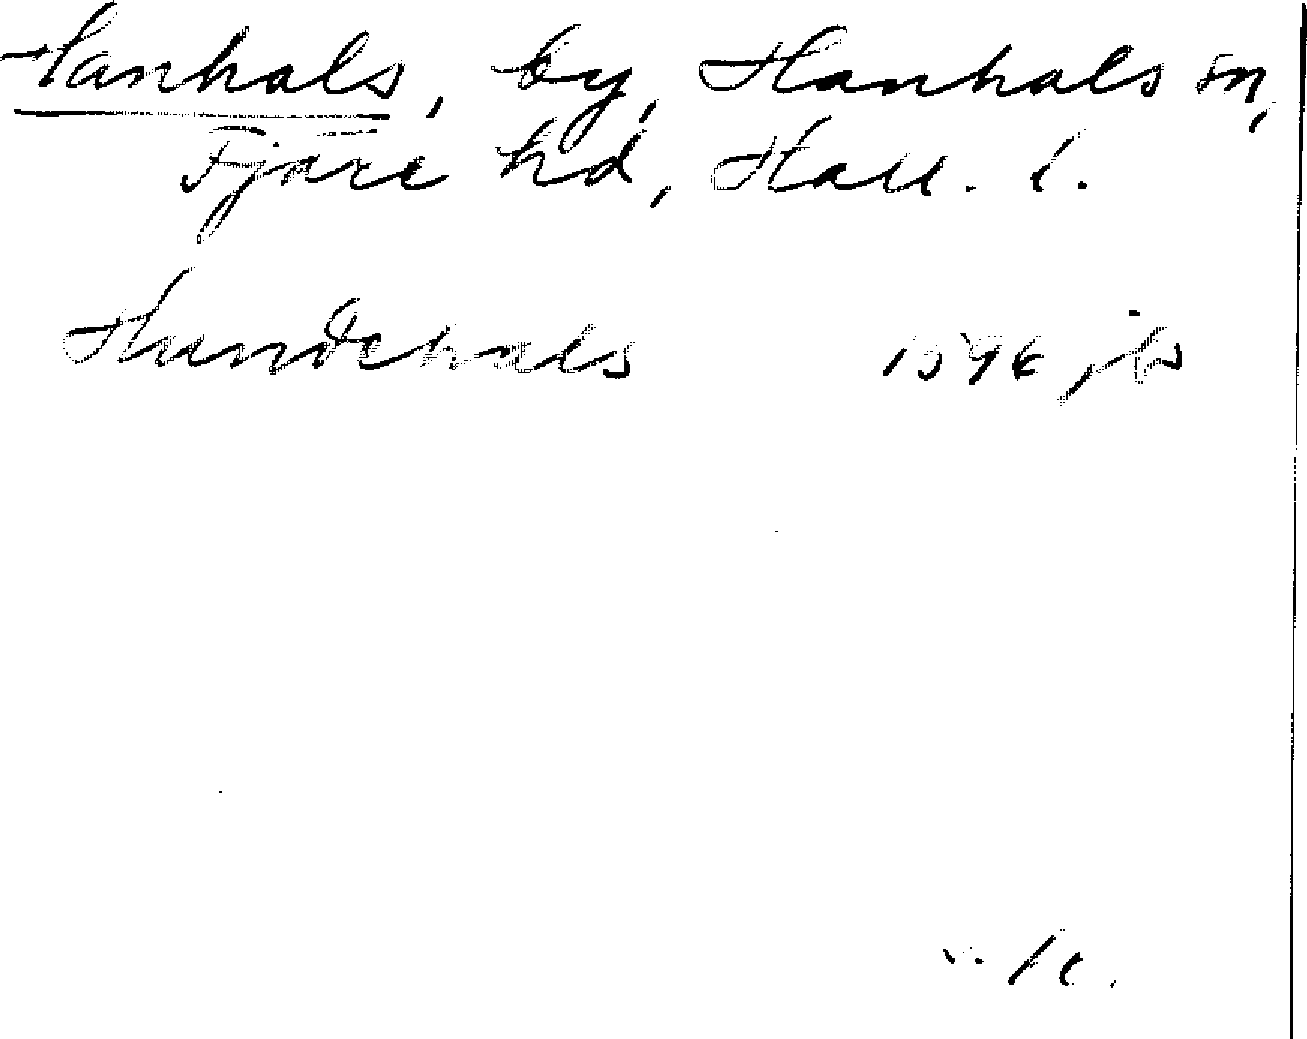 Hanhals, by, Hanhals sn,
Fjäre hd, Hall. l.
Hundehals 1596 jb